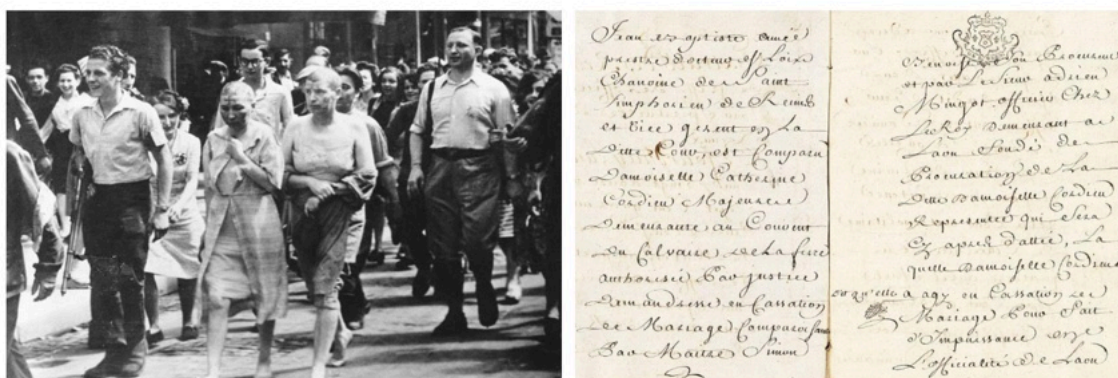 Jean
prestre docteur es Loix
Chanoine de Saint
Simphorien de Reims
et vice gerent en La
ditte Cour, est Comparu
Damoiselle Catherine
Cordieu Majeure
demeurante au Couvent
du Calvaire de La fere
authorisée Par justice
demandresse en Cassation
de Mariage
Par Maitre Simon
son Procureur
et par Le Sieur adrien
Mingot officier Chez
Le Roy demeurant a
Laon fondé de
Procuration de La
ditte Damoiselle Cordieu
Representée qui sera
cy apres dattée, La
quelle Damoiselle Cordieu
qu'elle a agy en Cassation de
Mariage Pour fait
d'Impuissance en
L'officialité de Laon